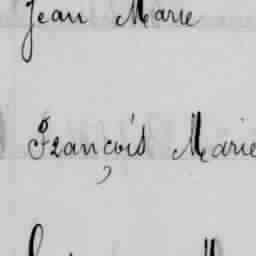 Jean Marie
François Marie